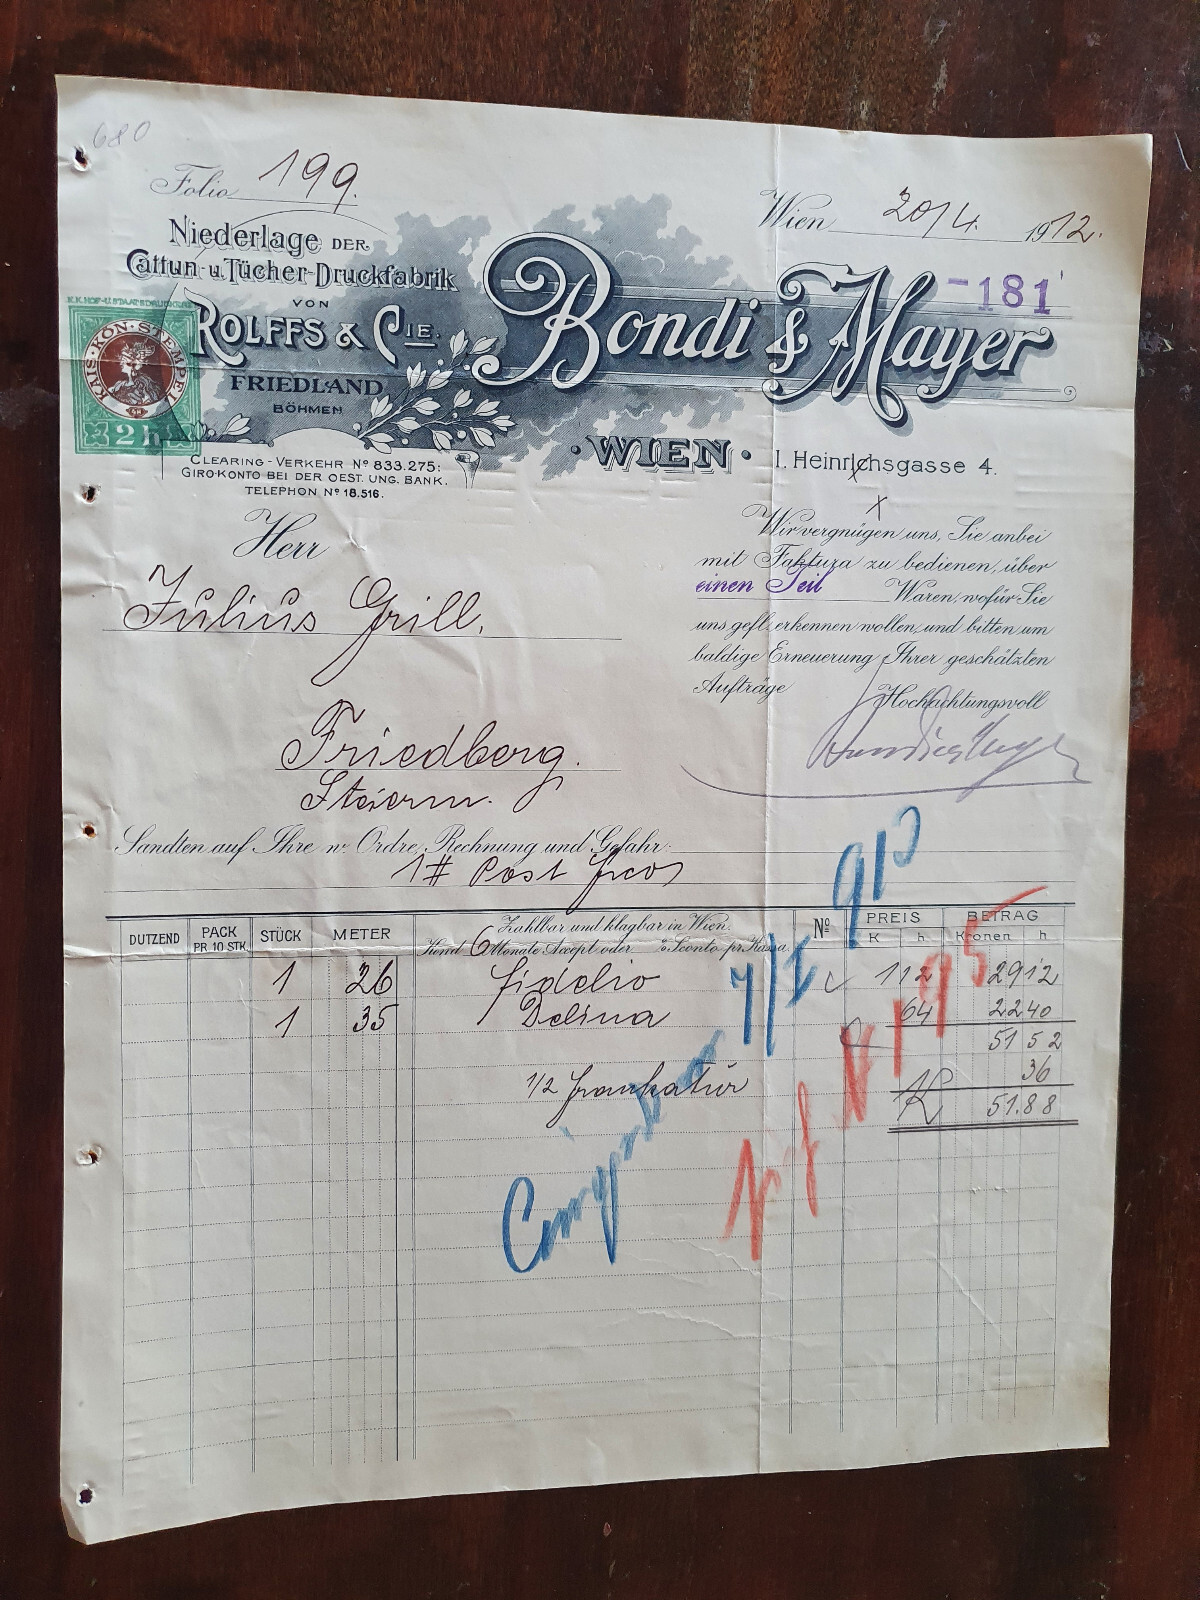 680
Folio 199.
Wien 20/4. 1912.
Niederlage DER
Cattun- u. Tücher-Druckfabrik
VON
ROLFFS & CIE.
FRIEDLAND
BÖHMEN
Bondi & Mayer
-181
K.K. HOF-U. STAATSDRUCKEREI
KAIS·KÖN·STEMPEL
2 h
·WIEN· I. Heinrichsgasse 4.
CLEARING-VERKEHR No 833.275:
GIRO-KONTO BEI DER OEST. UNG. BANK.
TELEPHON No 18.516.
Herr
Julius Grill,
Friedberg.
Steierm.
Wir vergnügen uns, Sie anbei
mit Faktura zu bedienen, über
einen Teil Waren, wofür Sie
uns gefl. erkennen wollen, und bitten um
baldige Erneuerung Ihrer geschätzten
Aufträge
Hochachtungsvoll
Sandten auf Ihre w. Ordre, Rechnung und Gefahr:
1# Post frco
DUTZEND PACK PR. 10 STK STÜCK METER Zahlbar und klagbar in Wien. No PREIS K h BETRAG Kronen h
6 Monate Accept oder % Sconto pr. Kassa.
1 26 Fidelio 112 29 12
1 35 Delina 64 22 40
51 52
1/2 Frankatur 36
K 51.88
7/I 913